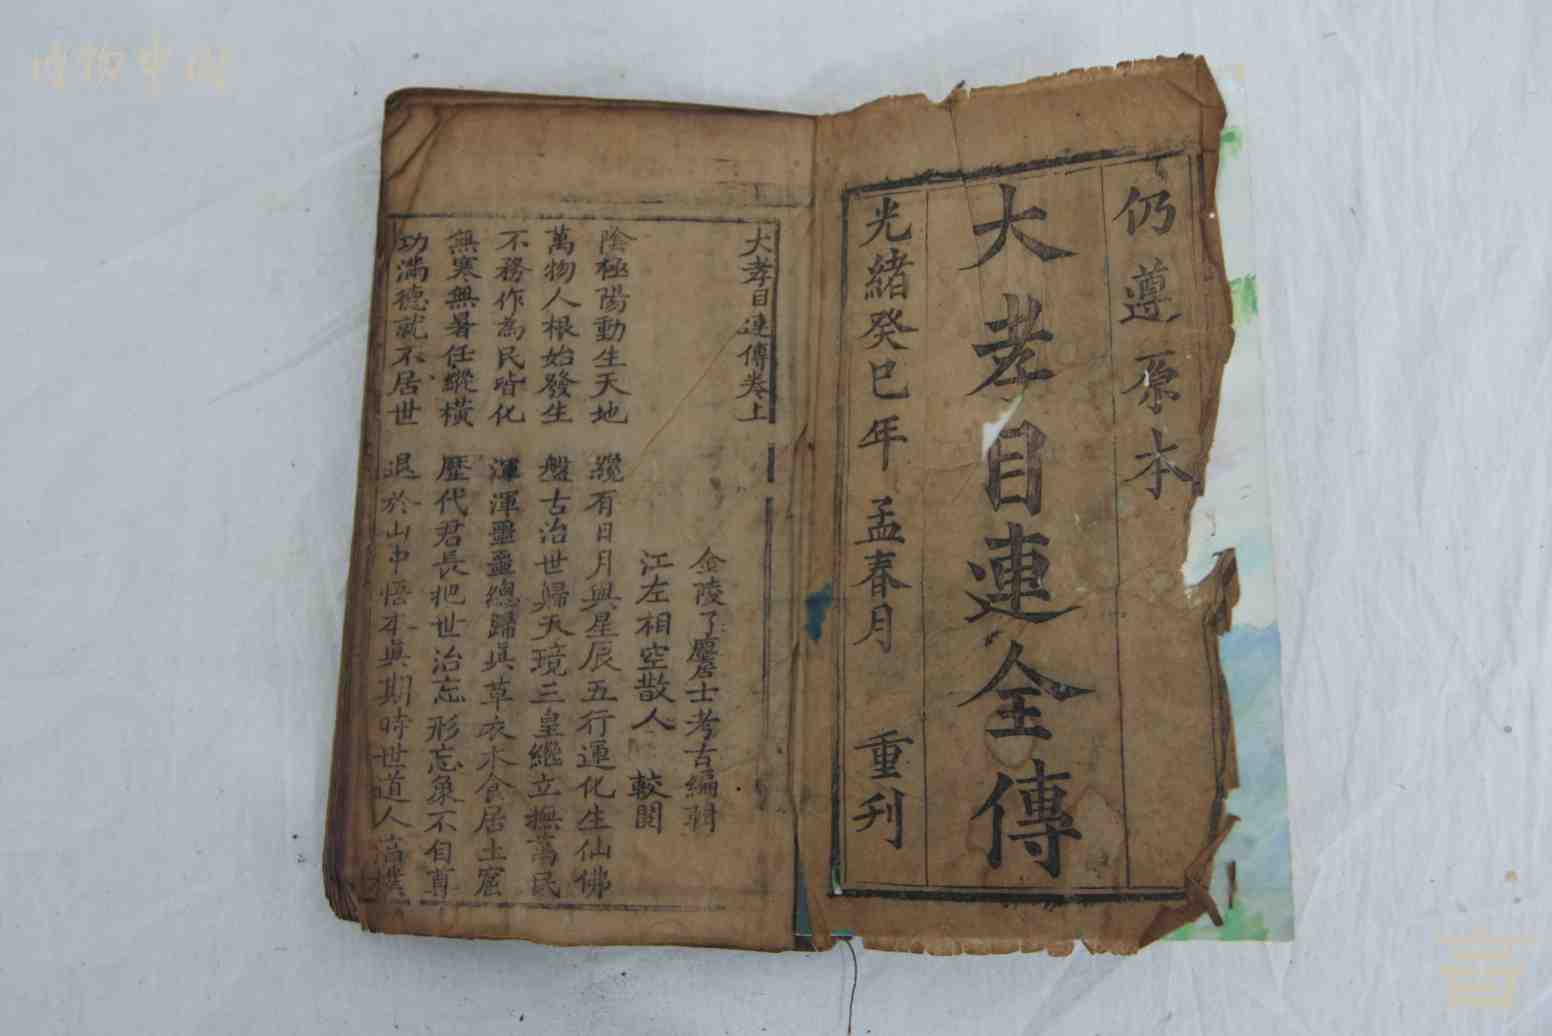 仍遵原本
大孝目連全傳
光緒癸巳年孟春月 重刋
大孝目連傳卷上
金陵了塵居士考古編輯
江左相空散人 較閱
陰極陽動生天地 纔有日月與星辰五行運化生仙佛
萬物人根始發生 盤古治世歸天境三皇繼立撫萬民
不務作為民皆化 渾渾噩噩總歸真草衣木食居土窟
無寒無暑任縱橫 歷代君長把世治忘形忘象不自尊
功滿德就不居世 退於山中悟本真期時世道人高樸
博物中國